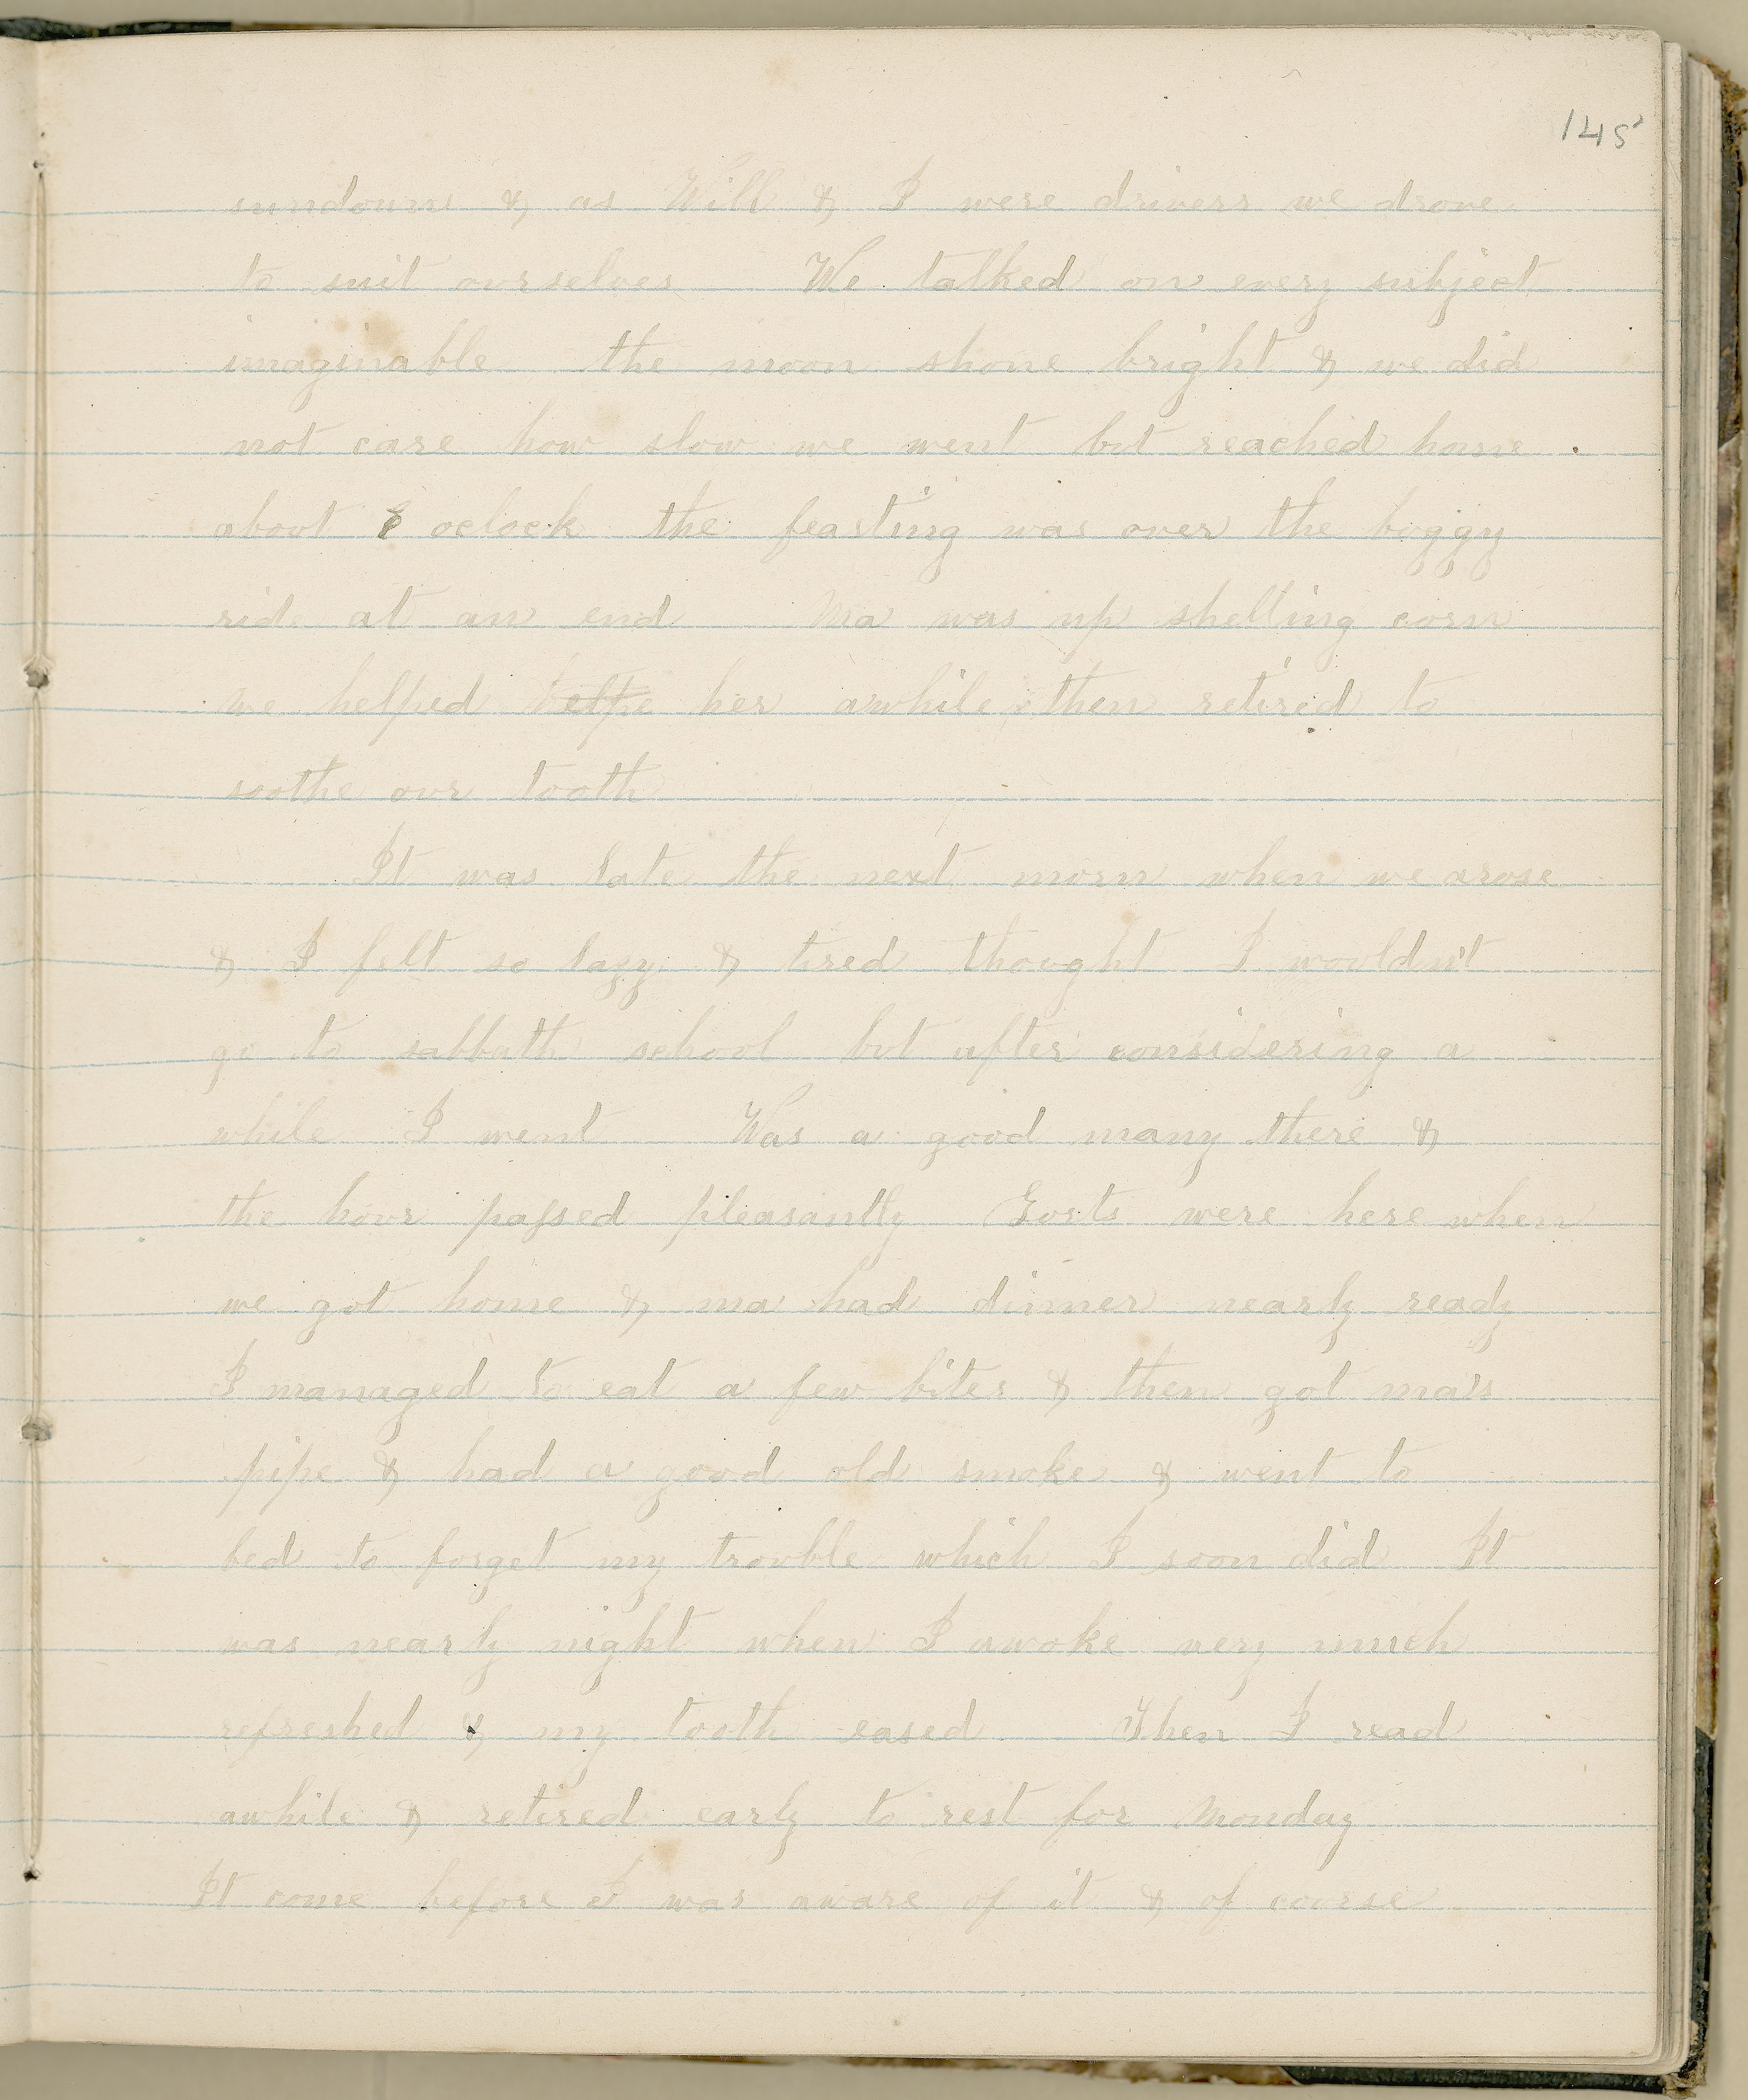 145
sundown & as Will & I were drivers we drove
to suit ourselves We talked on every subject
imaginable the moon shone bright & we did
not care how slow we went but reached home
about 8 oclock the feasting was over the buggy
ride at an end Ma was up shelling corn
we helped helpe her awhile & then retired to
soothe our tooth
It was late the next morn when we arose
& I felt so lazy & tired thought I wouldn't
go to sabbath school but after considering a
while I went Was a good many there &
the hour passed pleasantly Gorts were here when
we got home & ma had dinner nearly ready
I managed to eat a few bites & then got ma's
pipe & had a good old smoke & went to
bed to forget my trouble which I soon did It
was nearly night when I awoke very much
refreshed & my tooth eased Then I read
awhile & retired early to rest for Monday
It come before I was aware of it & of course